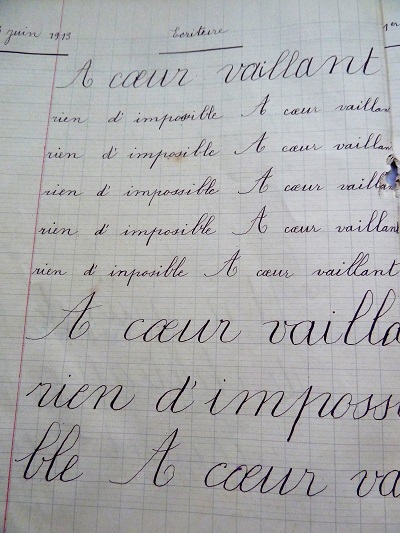 juin 1913 Ecriture 1er
A cœur vaillant
rien d' impossible A cœur vaillan
rien d' imposible A cœur vaillan
rien d' impossible A cœur vaillan
rien d' imposible A cœur vaillant
rien d' inposible A cœur vaillant
A cœur vailla
rien d'imposs
ble A cœur va